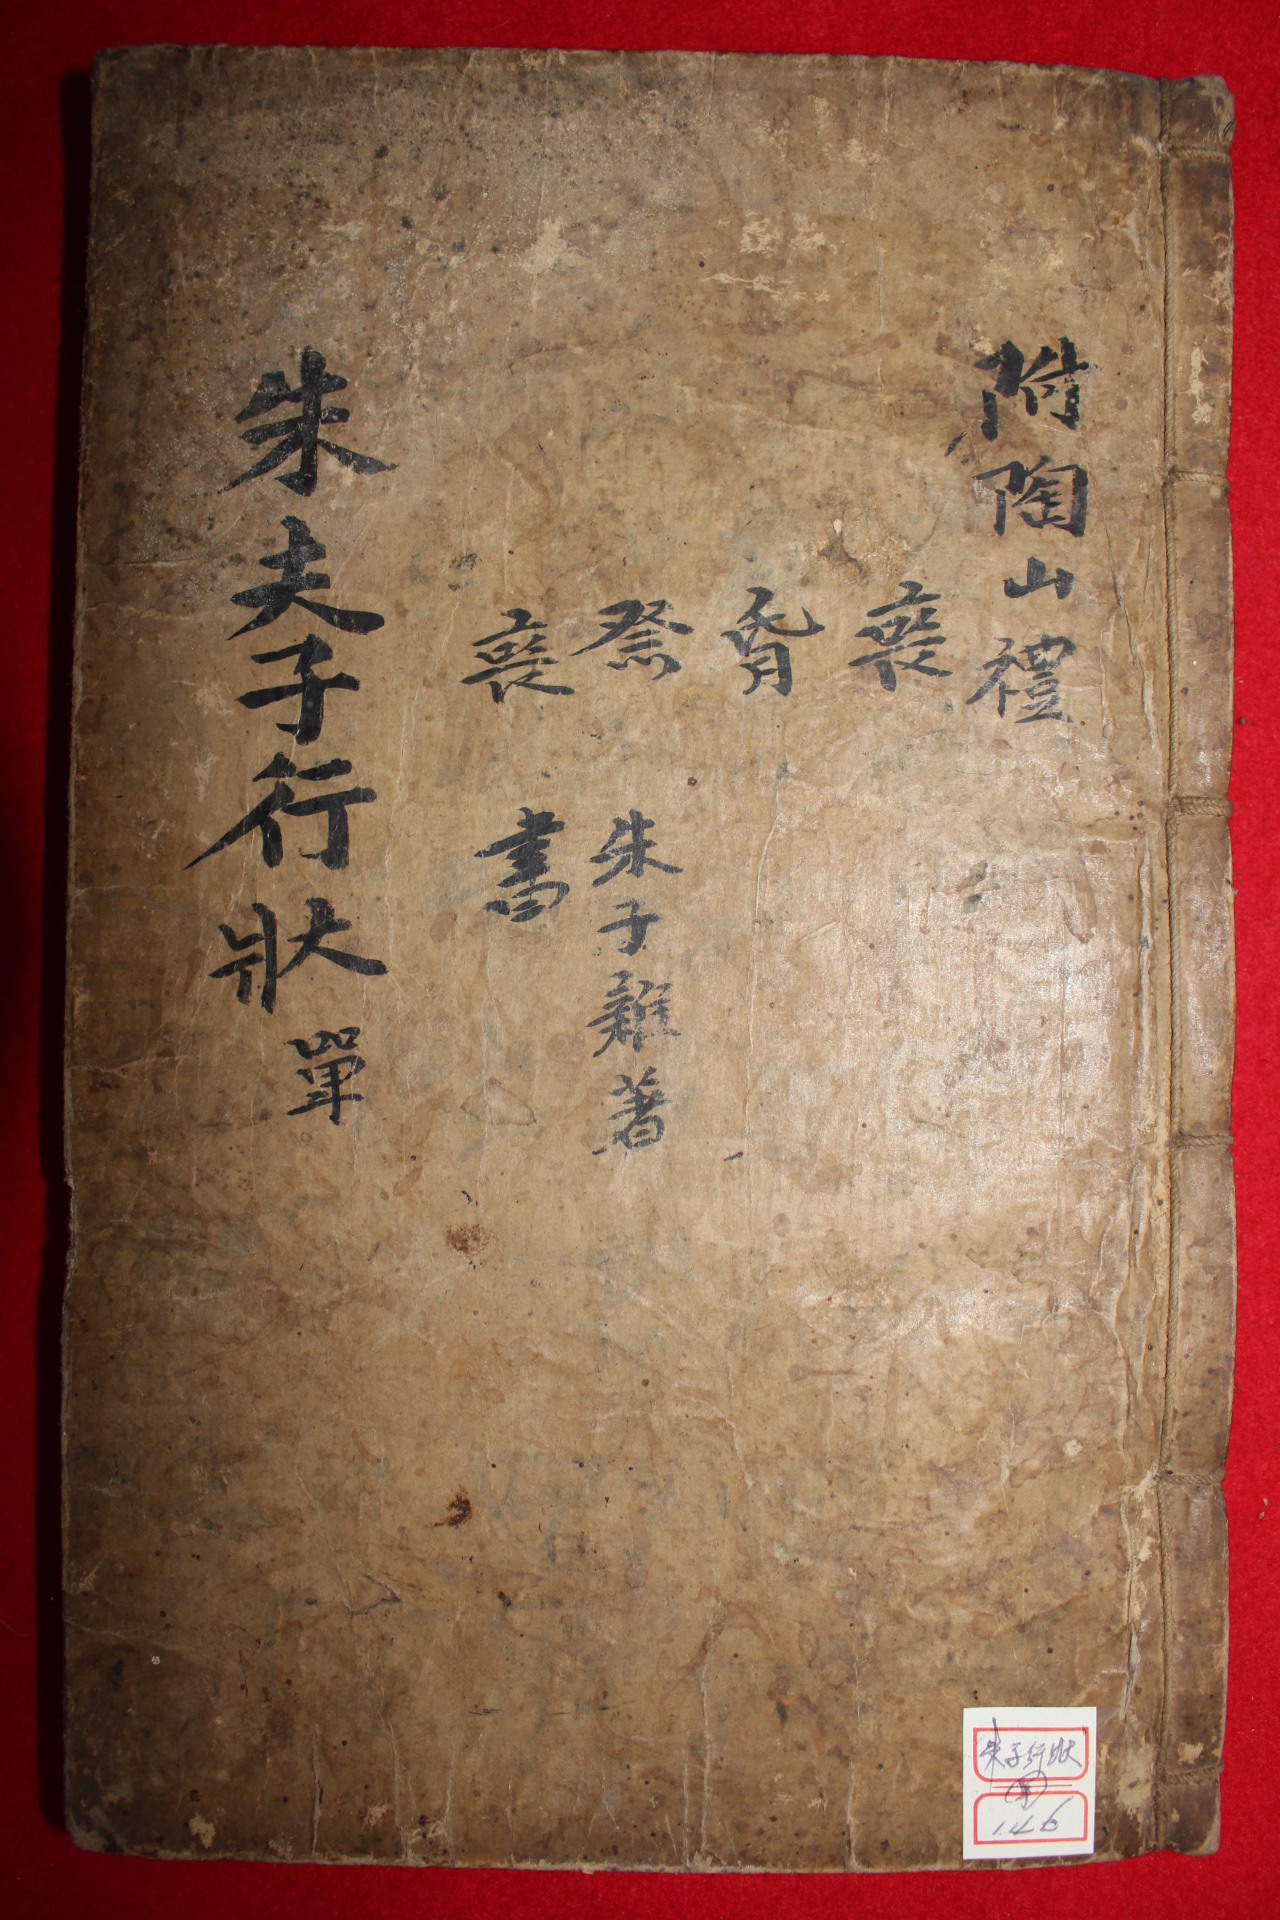 附陶山禮
喪
昏
祭 朱子雜著
喪 書
朱夫子行狀單
朱子行狀
146